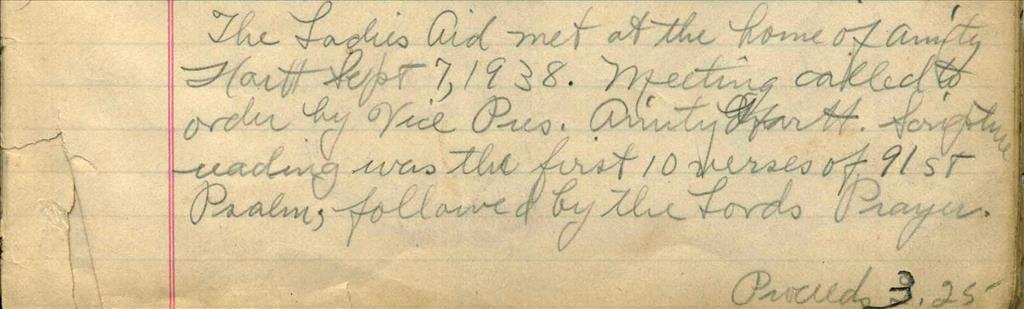 The Ladies Aid met at the home of Amity
Hartt Sept 7, 1938. Meeting called to
order by Vice Pres. Amity Hartt. Scripture
reading was the first 10 verses of 91st
Psalm, followed by the Lords Prayer.
Proceeds 3.25